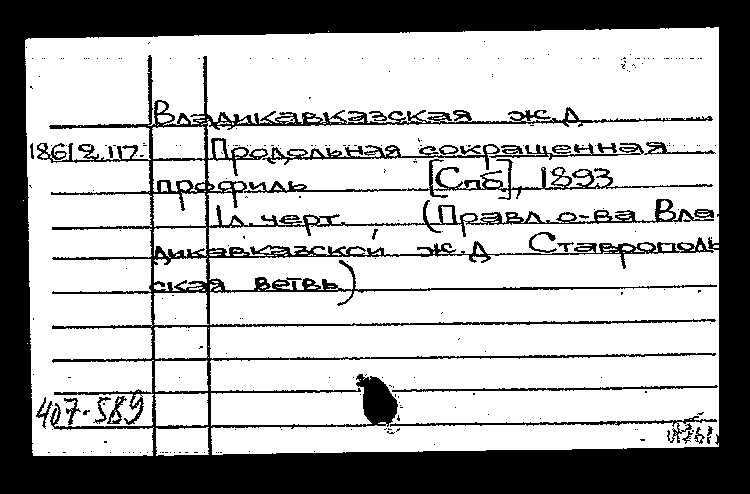 Владикавказская ж.д
186/2.117. Продольная сокращенная
профиль [Спб], 1893
1л. черт. (Правл. о-ва Вла-
дикавказской ж.д Ставрополь
ская ветвь)
407-589